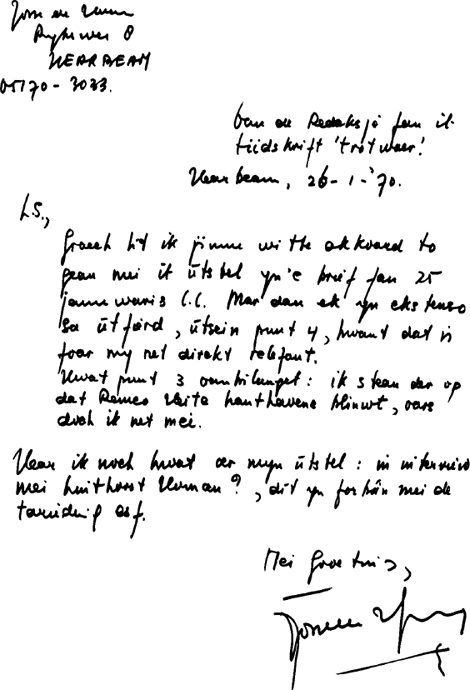 8
HEARREAM
05170-3033.
Oan de Redaksje fan it
tiidskrift 'trotwaer'.
Hearream, 26-1-'70.
L.S.,
Graech lit ik jimme witte akkoard to
gean mei it útstel yn'e brief fan 25
jannewaris l.l. Mar dan ek yn ekstenso
sa útfierd, útsein punt 4, hwant dat is
foar my net direkt relefant.
Hwat punt 3 oanbilanget: ik stean der op
dat Remco hanthavene bliuwt, oars
doch ik net mei.
Hear ik noch hwat oer myn útstel: in interview
mei?, dit yn forbân mei de
tarieding asf.
Mei groetnis,